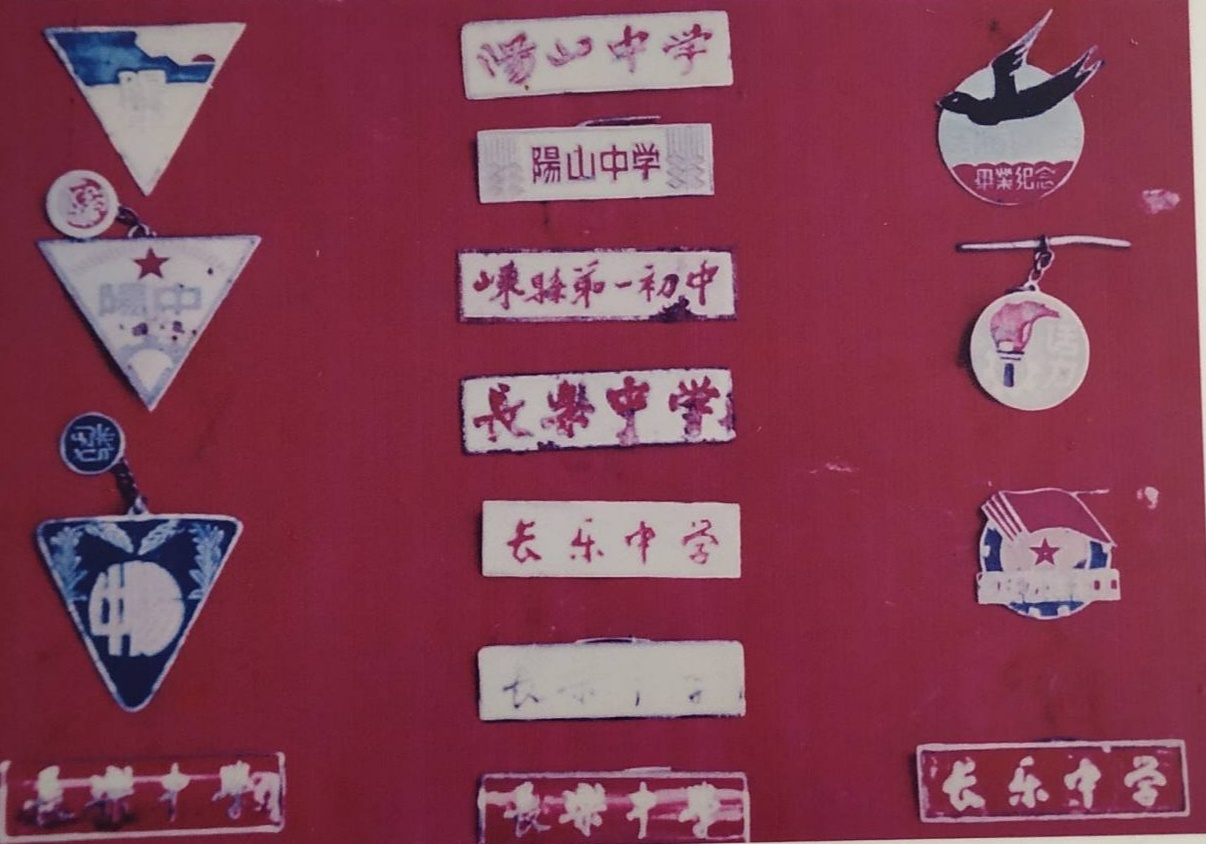 陽山中学
陽山中学
畢業纪念
陽中
嵊縣第一初中
長樂中学
长乐中学
長樂中學
長樂中學
长乐中学